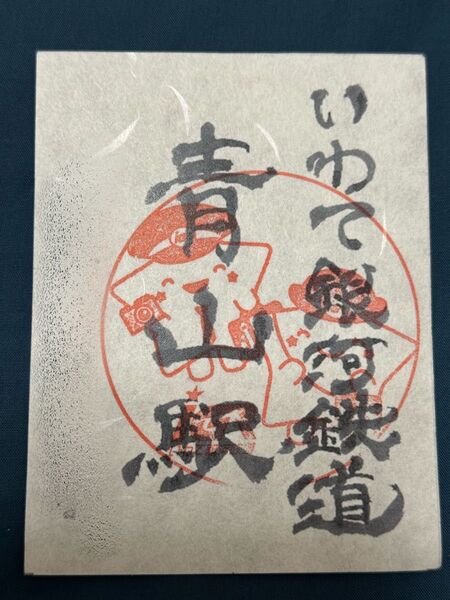 いわて銀河鉄道
青山駅